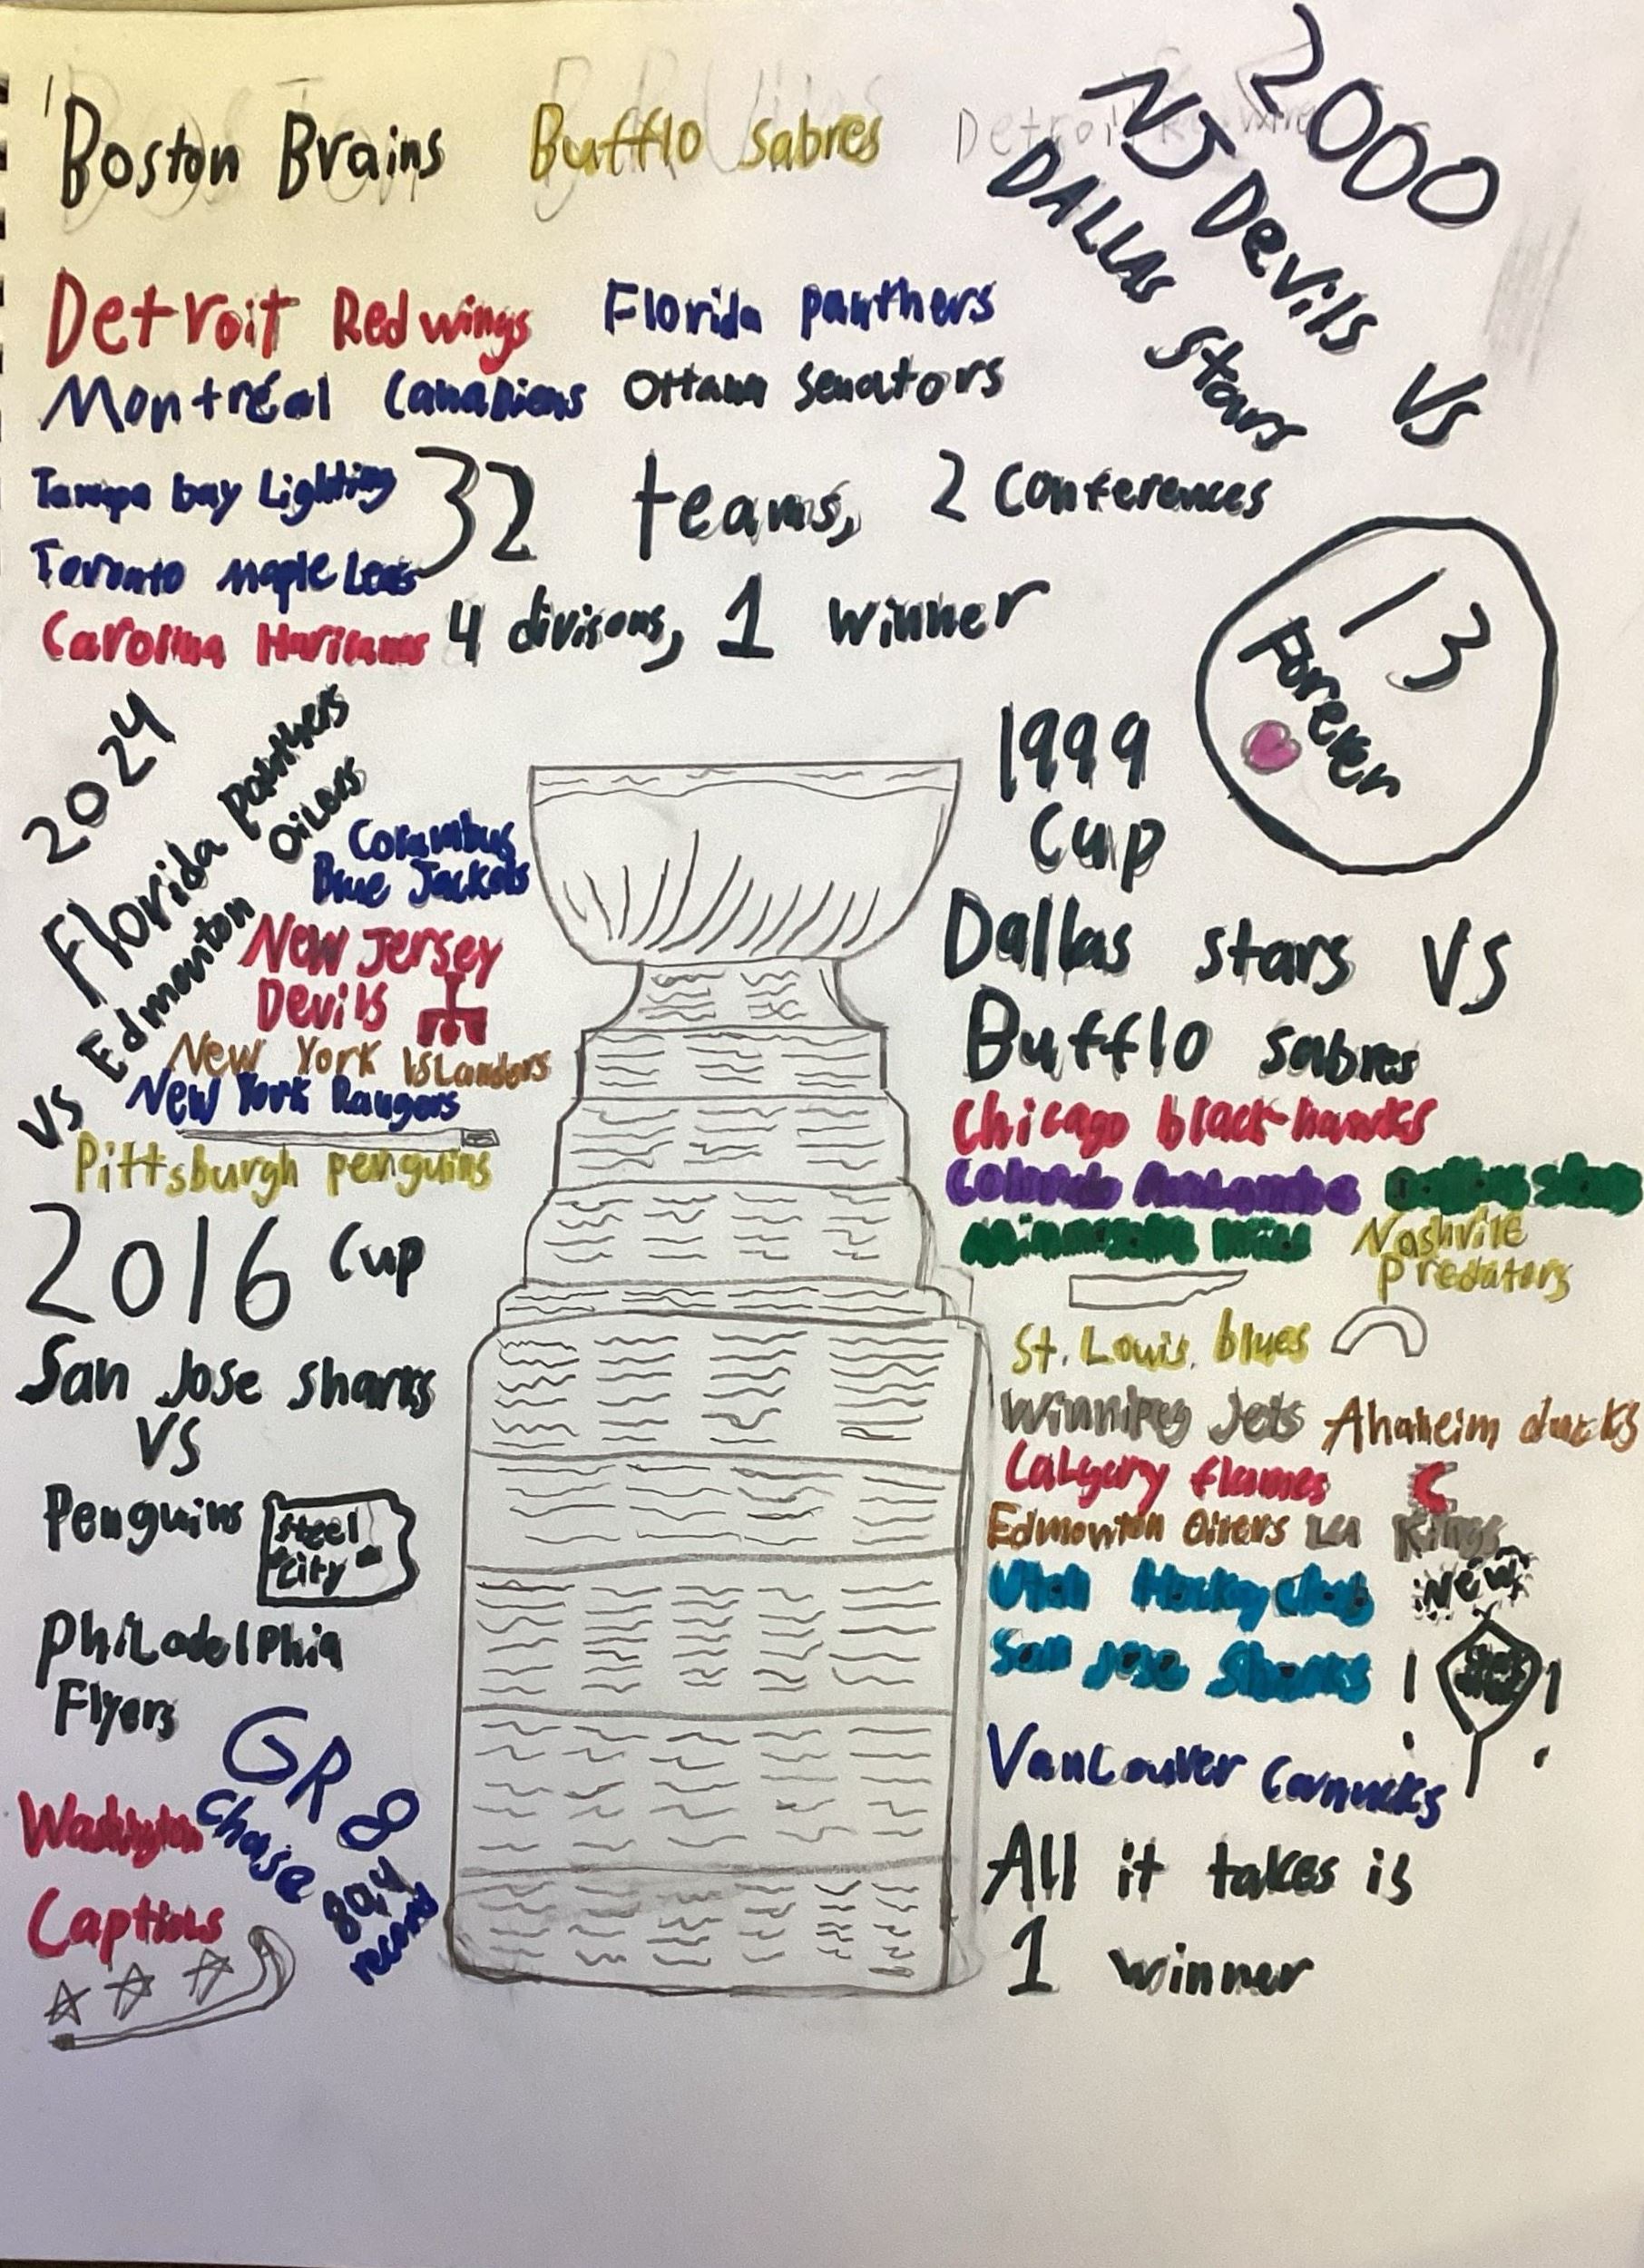 Boston Brains Bufflo sabres
2000
NJ Devils VS
DALLAS Stars
Detroit Red wings Florida panthers
Montréal Canadiens Ottawa Senators
Tampa bay Lighting
32 teams, 2 Conferences
Toronto Maple Leafs
4 divisons, 1 winner
Carolina Harricanes
13
Forever
2024
Florida panthers
VS Edmonton Oilers
Columbus
Blue Jackets
New Jersey
Devils
New York Islanders
New York Rangers
Pittsburgh penguins
1999
Cup
Dallas stars VS
Bufflo sabres
Chicago black-hawks
Colorado
Minnesota Wild
Nashvile
Predators
St. Louis. blues
Winnipeg Jets Anaheim ducks
Calgary flames C
Edmonton Oilers LA Kings
Utah Hockey Club New
San Jose Sharks ! !
Vancouver Cornucks
All it takes is
1 winner
2016 Cup
San Jose Sharks
VS
Penguins
Steel
City
Philadelphia
Flyers
GR 8
Chase
894
record
Washington
Captials